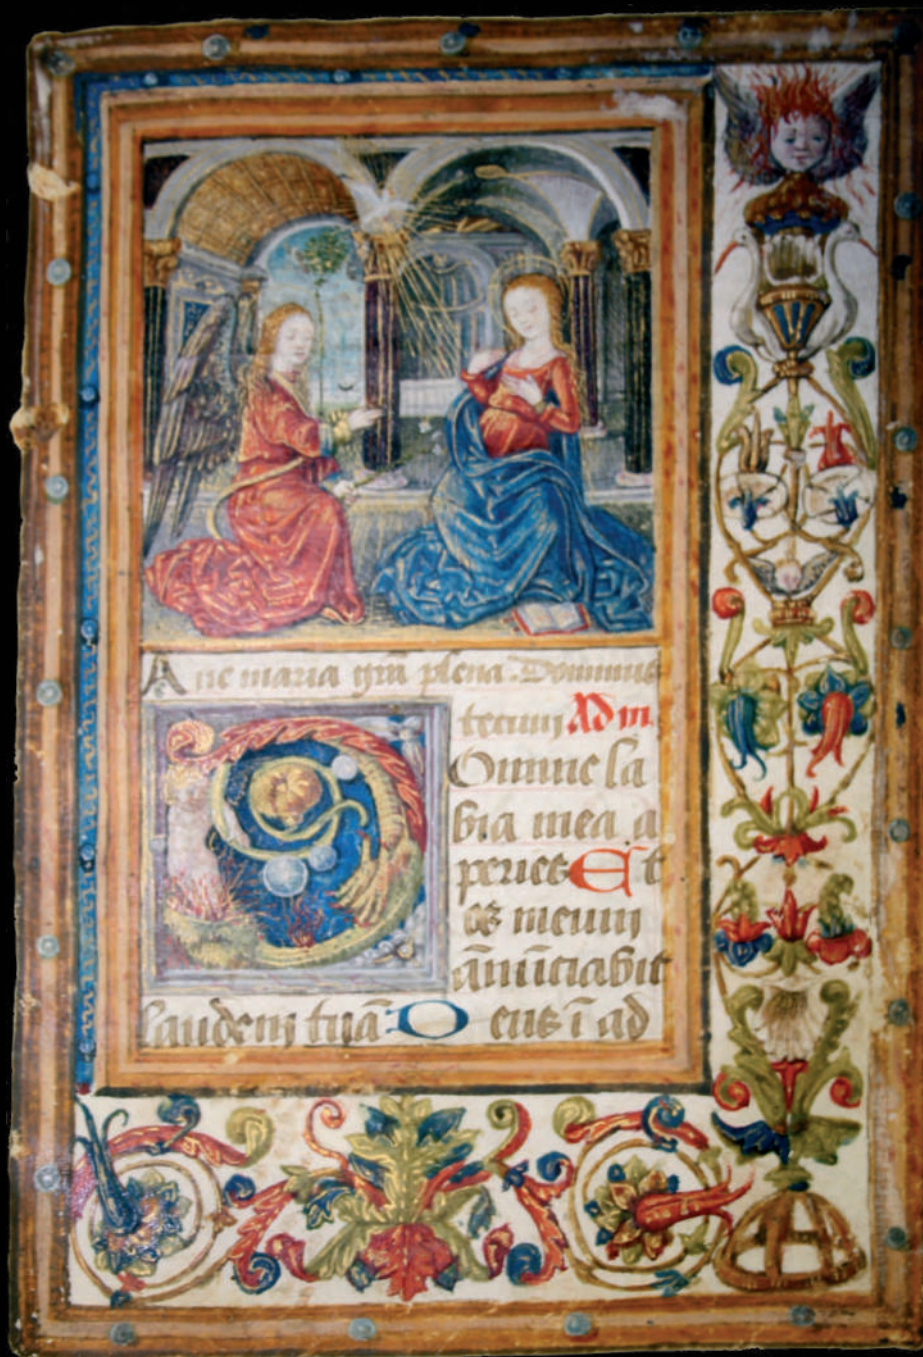 Aue maria grā plena. Dominus
tecum Ad m
DOmine la
bia mea a
peries Et
os meum
ānūciabit
laudem tuā. Deus ī ad